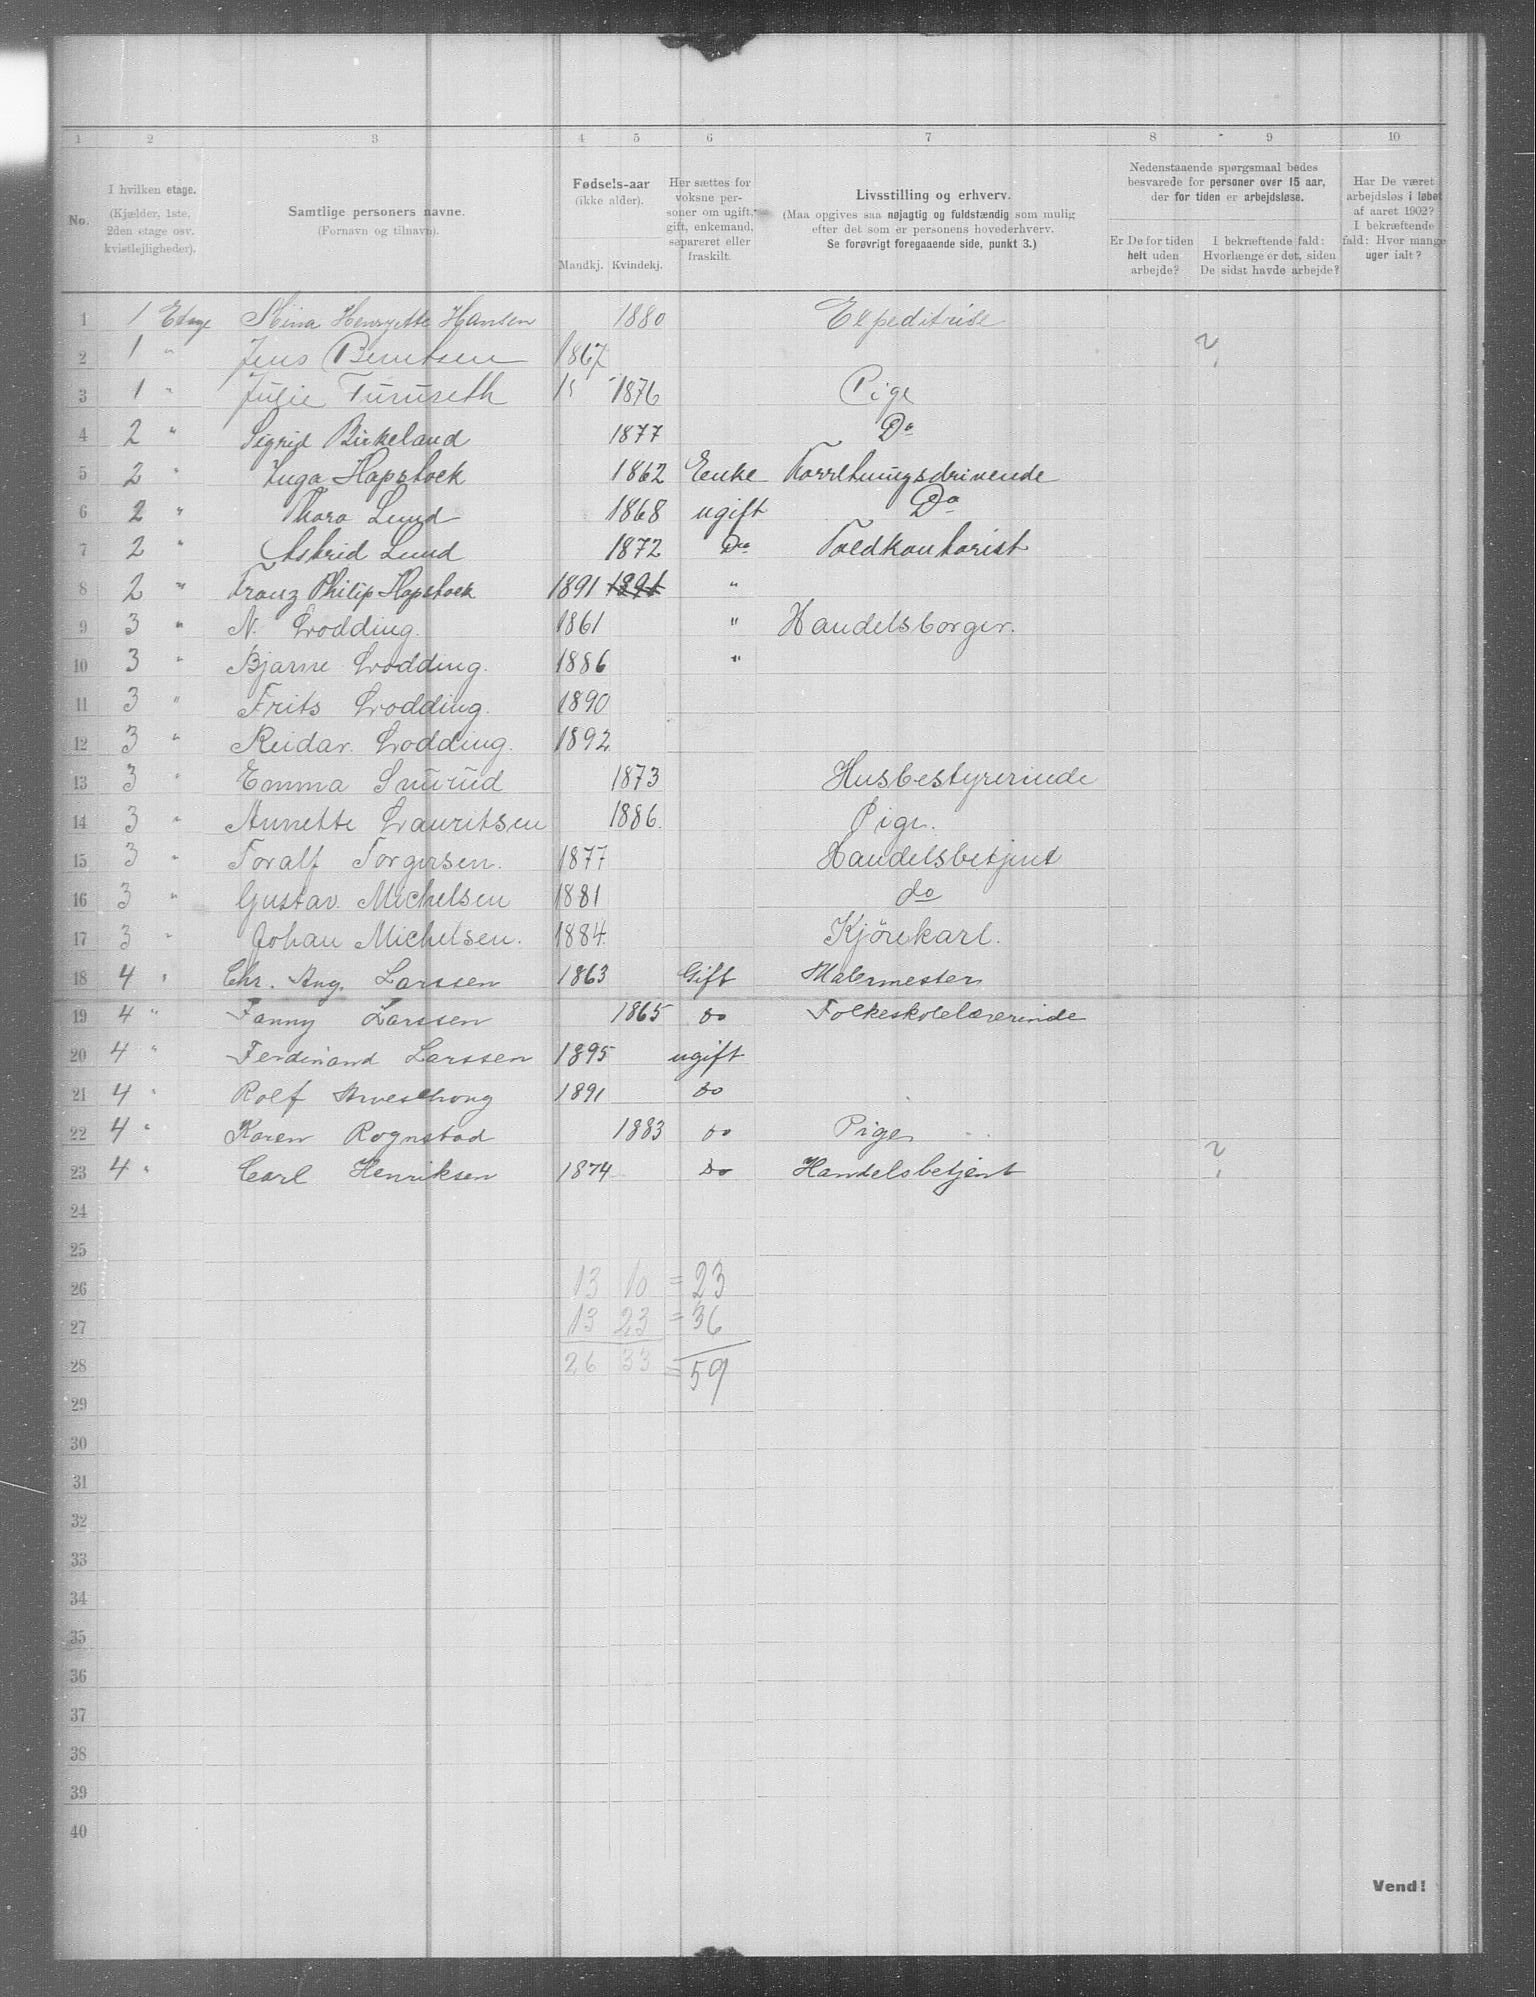 1 2 3 4 5 6 7 8 9 10
No.
I hvilken etage.
(Kjælder, 1ste,
2den etage osv.
kvistlejligheder).
Samtlige personers navne.
(Fornavn og tilnavn).
Fødsels-aar
(ikke alder).
Mandkj. Kvindekj.
Her sættes for
voksne per-
soner om ugift,
gift, enkemand,
separeret eller
fraskilt.
Livsstilling og erhverv.
(Maa opgives saa nøjagtig og fuldstændig som mulig
efter det som er personens hovederhverv.
Se forøvrigt foregaaende side, punkt 3.)
Nedenstaaende spørgsmaal bedes
besvarede for personer over 15 aar,
der for tiden er arbejdsløse.
Er De for tiden
helt uden
arbejde?
I bekræftende fald:
Hvorlænge er det, siden
De sidst havde arbejde?
Har De været
arbejdsløs i løbet
af aaret 1902?
I bekræftende
fald: Hvor mange
uger ialt?
1 1 Etage Stina Henryette Hansen 1880 Expeditrise
2 1 " Jens Berntsen 1867 ?
3 1 " Julie Turuseth 1876 Pige
4 2 " Sigrid Birkeland 1877 Do
5 2 " Inga Hapstock 1862 Enke Forretningsdrivende
6 2 " Thora Lund 1868 ugift Do
7 2 " Astrid Lund 1872 Do Toldkontorist
8 2 " Franz Philip Hapstock 1891 1891 "
9 3 " N. Lrodding. 1861 " Handelsborger.
10 3 " Bjarne Lrodding. 1886 "
11 3 " Frits Lrodding. 1890
12 3 " Reidar. Lrodding. 1892
13 3 " Emma Snurud 1873 Husbestyrerinde
14 3 " Annette Lauritsen 1886. Pige.
15 3 " Toralf Torgersen. 1877 Handelsbetjent
16 3 " Gustav. Michelsen 1881 do
17 3 " Johan Michelsen. 1884. Kjörekarl.
18 4 " Chr. Aug. Larssen 1863 Gift Malermester
19 4 " Fanny Larssen 1865 Do Folkeskolelærerinde
20 4 " Ferdinand Larssen 1895 ugift
21 4 " Rolf 1891 Do
22 4 " Karen Rognstad 1883 Do Pige
23 4 " Carl Henriksen 1874 Do Handelsbetjent ?
24
25
26 13 10 = 23
27 13 23 = 36
28 26 33 = 59
29
30
31
32
33
34
35
36
37
38
39
40
Vend!